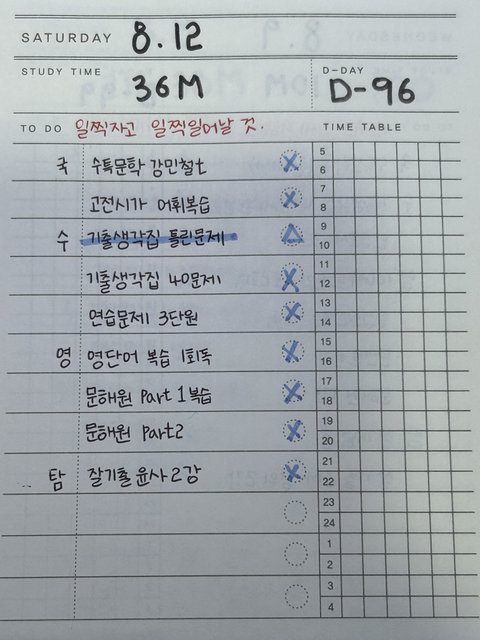 SATURDAY 8.12
STUDY TIME 36M D-DAY D-96
TO DO 일찍자고 일찍일어날 것. TIME TABLE
국 수특문학 강민철t
고전시가 어휘복습
수 기출생각집 틀린문제
기출생각집 40문제
연습문제 3단원
영 영단어 복습 1회독
문해원 Part 1 복습
문해원 Part2
탐 잘기출 윤사 2강
5
6
7
8
9
10
11
12
13
14
15
16
17
18
19
20
21
22
23
24
1
2
3
4